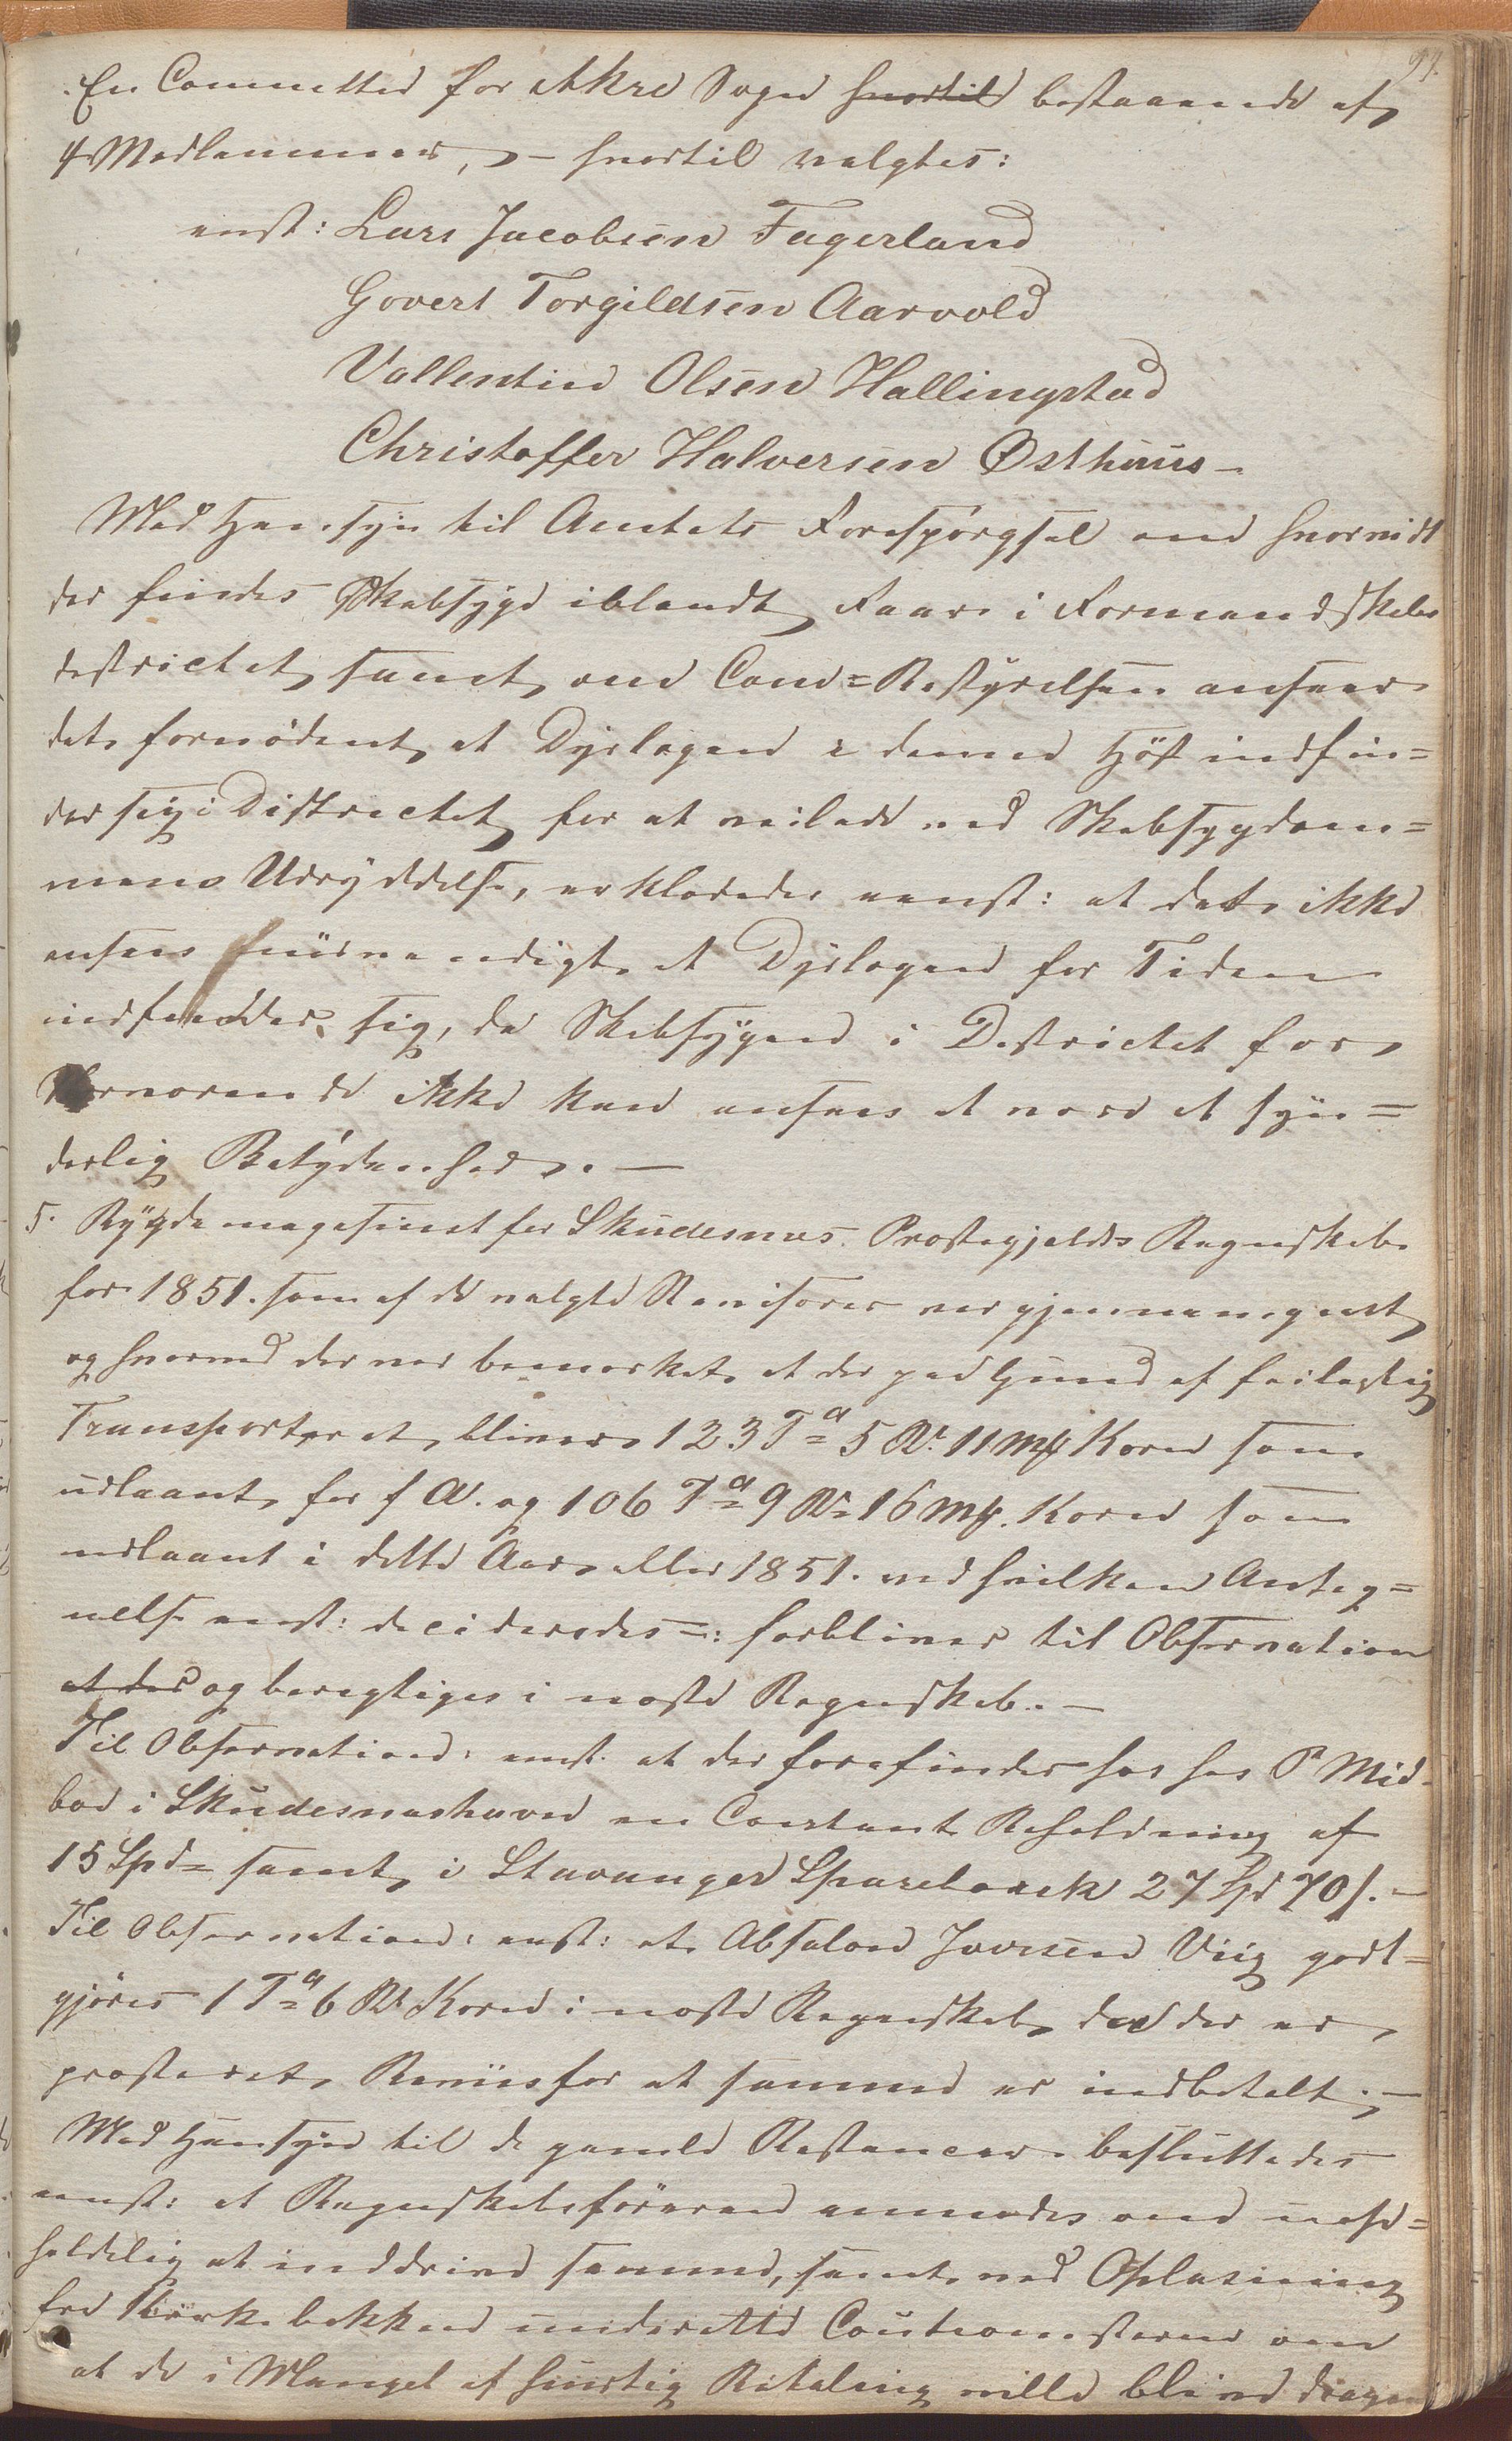 99.
En Committee for Akre Sogn hvortil bestaaende af
4 Medlemmer, – hvortil valgtes:
enst: Lars Jacobsen Fagerland
Govert Torgildsen Aarvold
Vallentin Olsen Hallingstad
Christoffer Halversen Østhuus –
Med Hensyn til Amtets Forespørgsel om hvorvidt
der findes Skabsyge iblandt Faar i Formandskabs
districtet, samt om Com=Bestyrelsen anseer
det fornødent, at Dyrlægen i denne Høst indfin=
der sig i Districtet for at veilede ved Skabsygdom=
mens Udryddelse, erklæredes eenst: at det ikke
ansees nødvendigt, at Dyrlægen for Tiden
indfinder sig, da Skabsygen i Districtet for
nærværende ikke kan ansees at være af syn=
derlig Betydenhed. –
5. Bygdemagasinet for Skudesnæs Præstegjelds Regnskab
for 1851. som af de valgte Revisorer var gjennemgaaet
og hvorved der var bemærket, at der paa Grund af feilagtig
Transporteret, bliver 123 Tdr 5 Vr 11 Mk Korn som
udlaant for f A. og 106 Tdr 9 Vr 16 Mk. Korn som
udlaant i dette Aar eller 1851. ved hvilken Anteg=
nelse eenst: decideredes =: forbliver til Observation
at der og berigtiges i næste Regnskab. –
Til Observation: eenst. at der forefindes hos Hr P Mid-
bøe i Skudesnæshavn en Contant Beholdning af
15 Spd= samt, i Stavanger Sparebank 27 Spd 70 s. –
Til Observation: enst: at Absalon Iversen Viig godt=
gjøres 1 Td 6 Vr Korn i næste Regnskab, da der er
præsteret Beviis for at samme er indbetalt. –
Med Hensyn til de gamle Restancer besluttedes
eenst: at Regnskabsføreren anmodes om uopp=
holdelig at inddrive samme, samt ved Oplæsning
fra Kirkebakken underrette Cautionisterne om
at de i Mangel af hurtig Betaling ville blive dragen